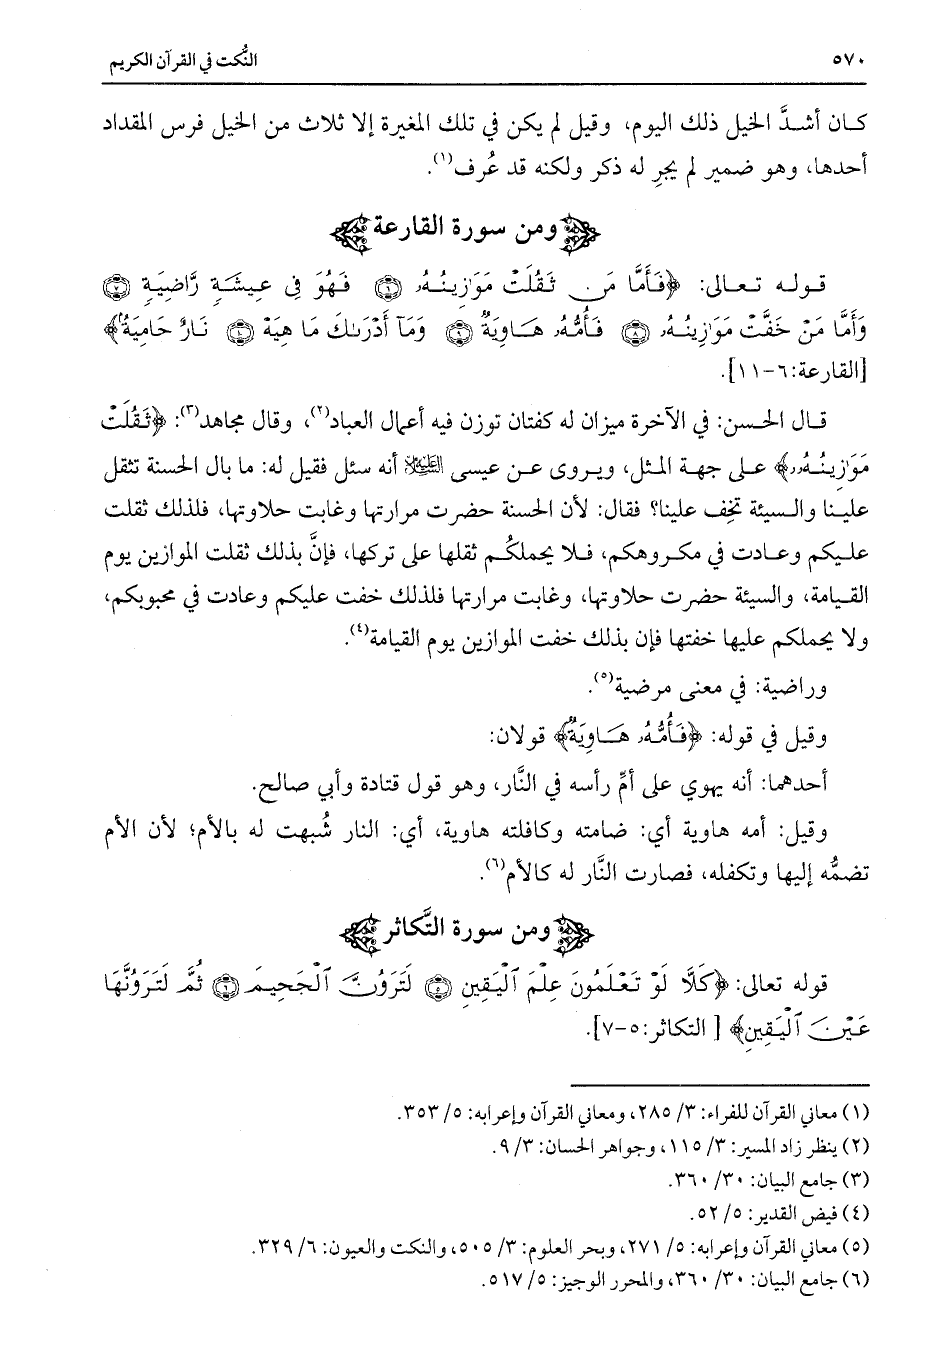 ٥٧٠
النُّكت في القرآن الكريم
كان أشدَّ الخيل ذلك اليوم، وقيل لم يكن في تلك المغيرة إلا ثلاث من الخيل فرس المقداد
أحدها، وهو ضمير لم يجرِ له ذكر ولكنه قد عُرف(١).
ومن سورة القارعة
قوله تعالى: ﴿فَأَمَّا مَن ثَقُلَتْ مَوَٰزِينُهُۥ ٦ فَهُوَ فِى عِيشَةٍ رَّاضِيَةٍ ٧
وَأَمَّا مَنْ خَفَّتْ مَوَٰزِينُهُۥ ٨ فَأُمُّهُۥ هَاوِيَةٌ ٩ وَمَآ أَدْرَىٰكَ مَا هِيَهْ ١٠ نَارٌ حَامِيَةٌ﴾
[القارعة:٦-١١].
قال الحسن: في الآخرة ميزان له كفتان توزن فيه أعمال العباد(٢)، وقال مجاهد(٣): ﴿ثَقُلَتْ
مَوَٰزِينُهُۥ﴾ على جهة المثل، ويروى عن عيسى عليه السلام أنه سئل فقيل له: ما بال الحسنة تثقل
علينا والسيئة تخِف علينا؟ فقال: لأن الحسنة حضرت مرارتها وغابت حلاوتها، فلذلك ثقلت
عليكم وعادت في مكروهكم، فلا يحملكُم ثقلها على تركها، فإنَّ بذلك ثقلت الموازين يوم
القيامة، والسيئة حضرت حلاوتها، وغابت مرارتها فلذلك خفت عليكم وعادت في محبوبكم،
ولا يحملكم عليها خفتها فإن بذلك خفت الموازين يوم القيامة(٤).
وراضية: في معنى مرضية(٥).
وقيل في قوله: ﴿فَأُمُّهُۥ هَاوِيَةٌ﴾ قولان:
أحدهما: أنه يهوي على أمِّ رأسه في النَّار، وهو قول قتادة وأبي صالح.
وقيل: أمه هاوية أي: ضامته وكافلته هاوية، أي: النار شُبهت له بالأم؛ لأن الأم
تضمُّه إليها وتكفله، فصارت النَّار له كالأم(٦).
ومن سورة التَّكاثر
قوله تعالى: ﴿كَلَّا لَوْ تَعْلَمُونَ عِلْمَ ٱلْيَقِينِ ٥ لَتَرَوُنَّ ٱلْجَحِيمَ ٦ ثُمَّ لَتَرَوُنَّهَا
عَيْنَ ٱلْيَقِينِ﴾ [ التكاثر:٥-٧].
(١) معاني القرآن للفراء: ٣/ ٢٨٥، ومعاني القرآن وإعرابه: ٥/ ٣٥٣.
(٢) ينظر زاد المسير: ٣/ ١١٥، وجواهر الحسان: ٣/ ٩.
(٣) جامع البيان: ٣٠/ ٣٦٠.
(٤) فيض القدير: ٥/ ٥٢.
(٥) معاني القرآن وإعرابه: ٥/ ٢٧١، وبحر العلوم: ٣/ ٥٠٥، والنكت والعيون: ٦/ ٣٢٩.
(٦) جامع البيان: ٣٠/ ٣٦٠، والمحرر الوجيز: ٥/ ٥١٧.